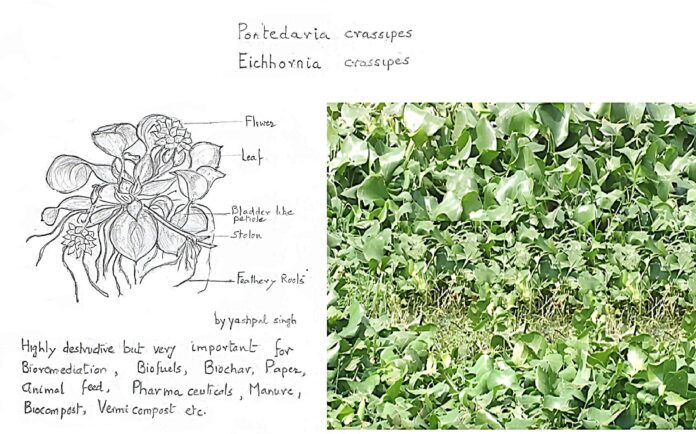 Pontedaria crassipes
Eichhornia crassipes
Flower
Leaf
Bladder like
petiole
Stolon
Feathery Roots
by yashpal singh
Highly destructive but very important for
Bioremediation, Biofuels, Biochar, Paper,
Animal feed, Pharmaceuticals, Manure,
Biocompost, Vermicompost etc.